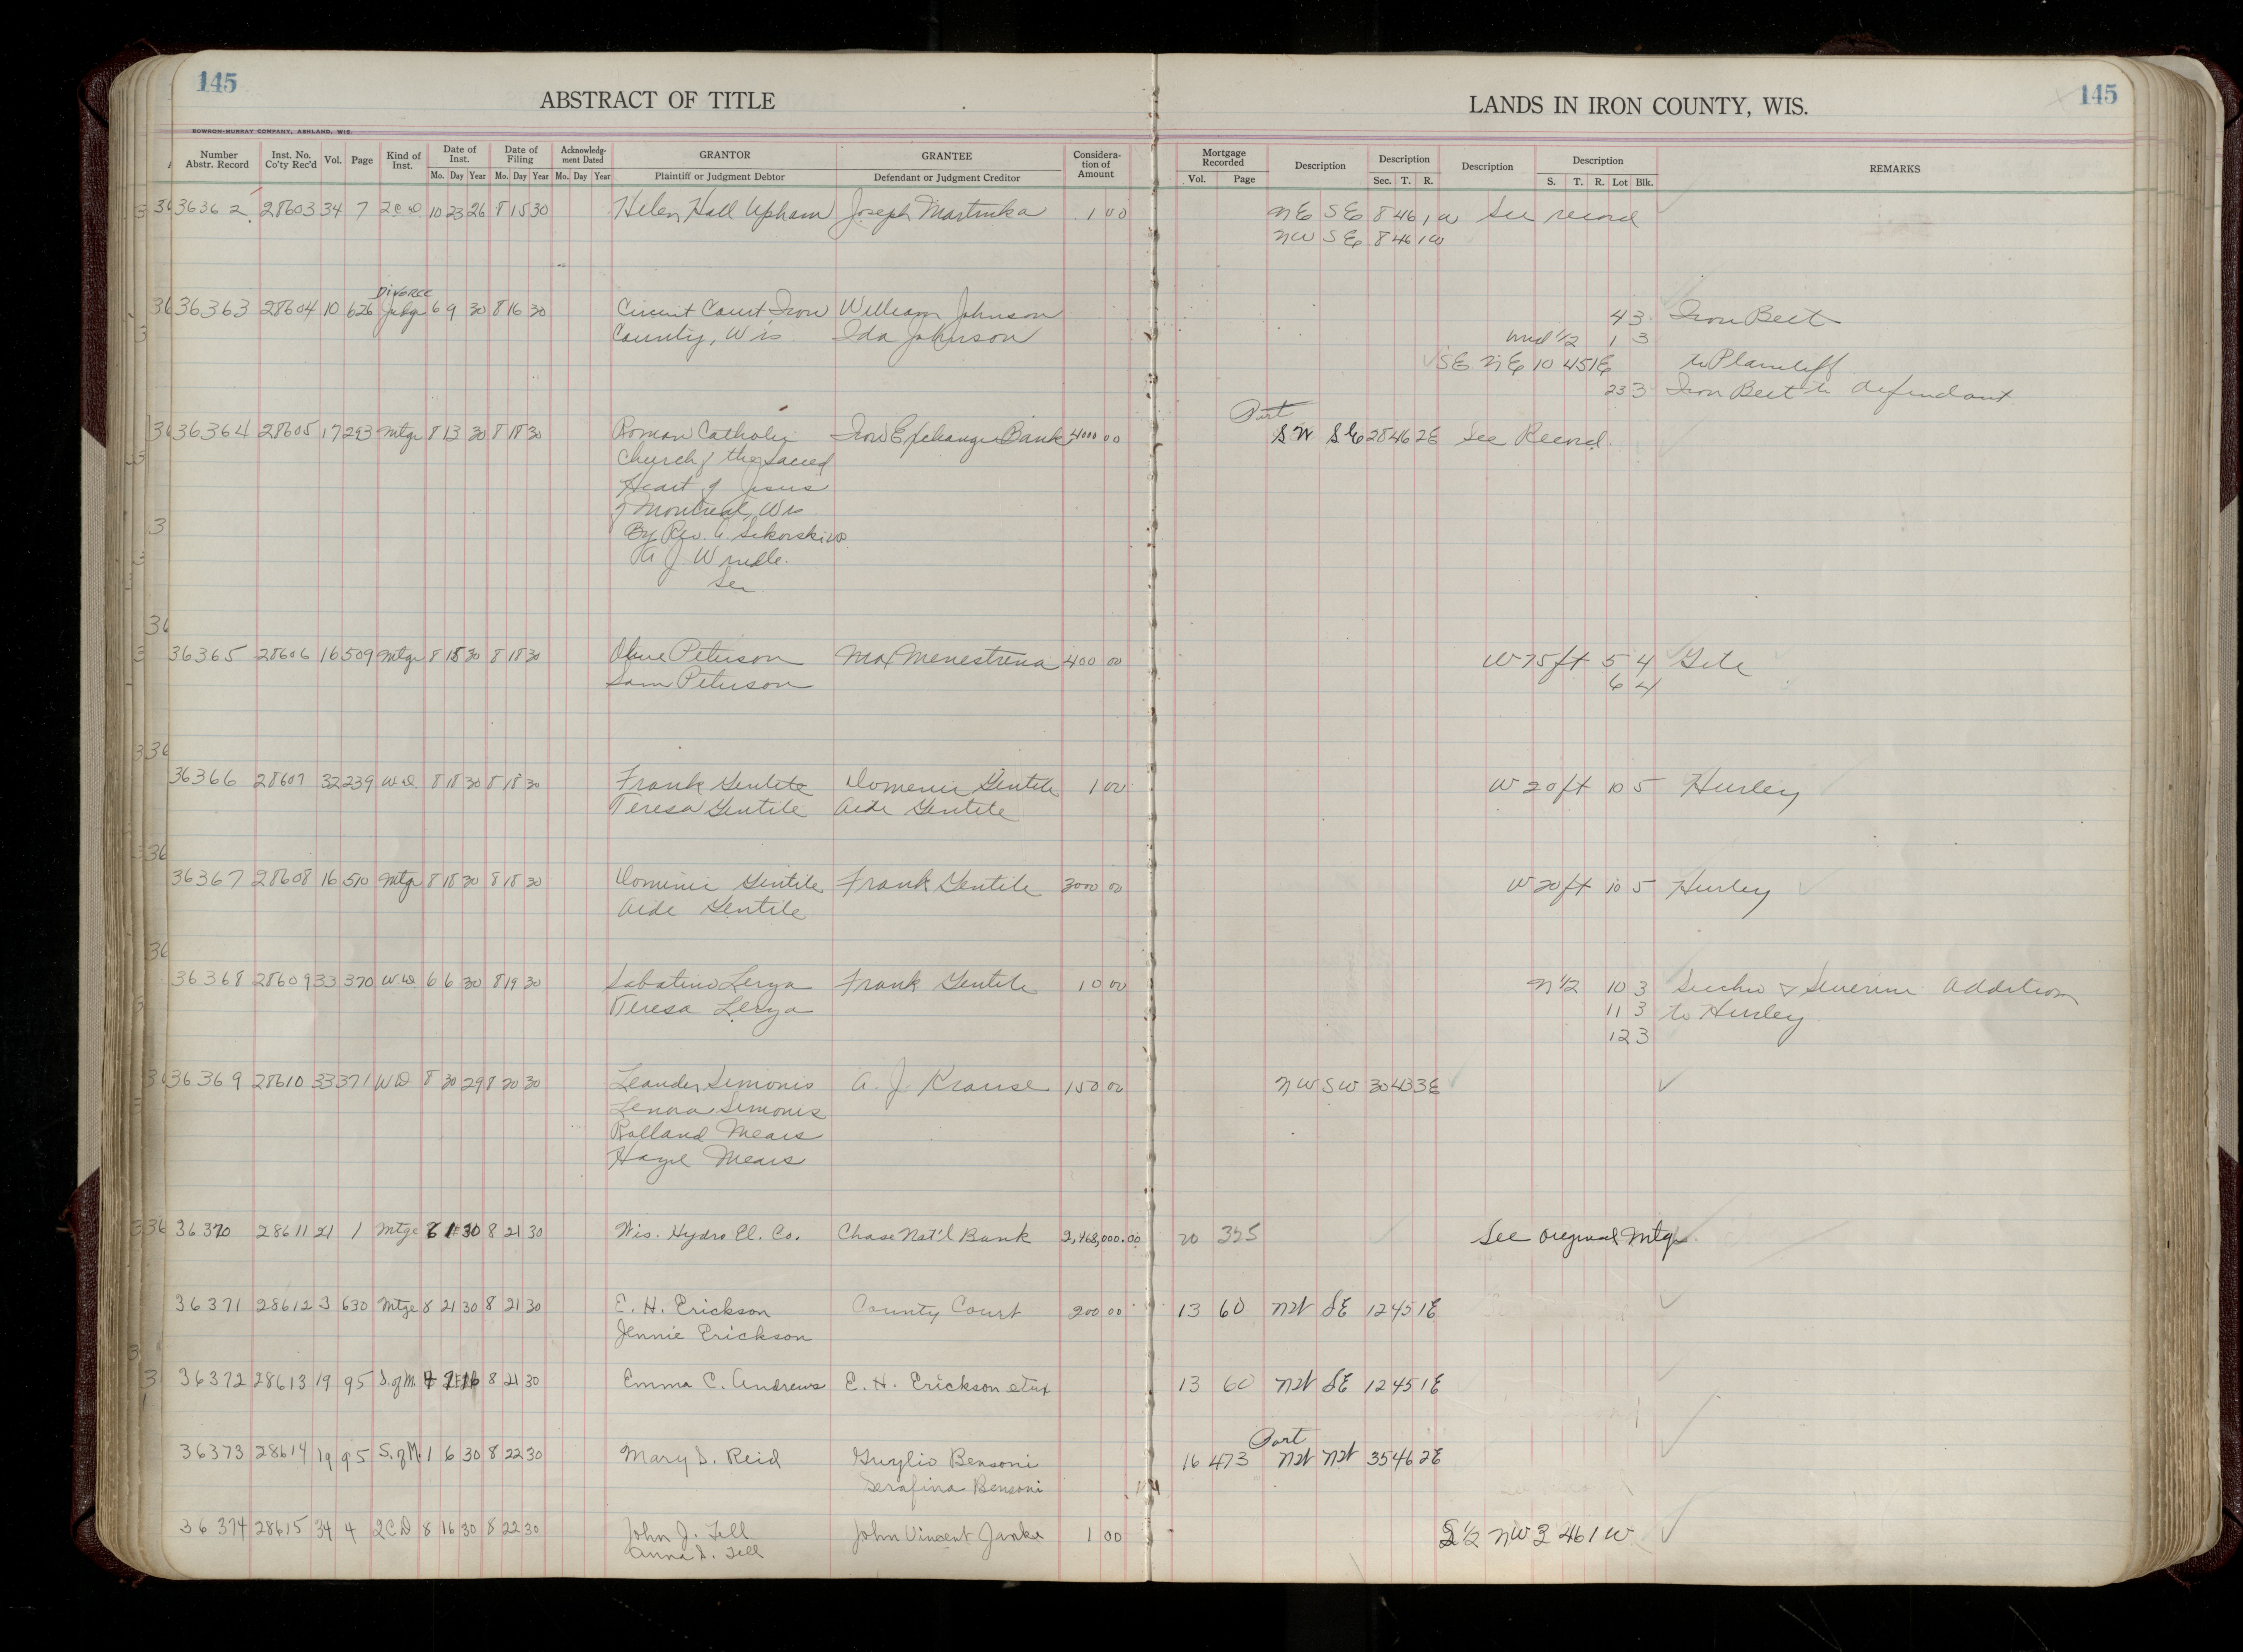 145
ABSTRACT OF TITLE
LANDS IN IRON COUNTY, WIS.
145
BOWRON-MURRAY COMPANY, ASHLAND, WIS.
Number Abstr. Record Inst. No. Co'ty Rec'd Vol. Page Kind of Inst. Date of Inst. Date of Filing Acknowledg-ment Dated GRANTOR GRANTEE Considera-tion of Amount Mortgage Recorded Description Description Description Description REMARKS
Mo. Day Year Mo. Day Year Mo. Day Year Plaintiff or Judgment Debtor Defendant or Judgment Creditor Vol. Page Sec. T. R. S. T. R. Lot Blk.
36362 28603 34 7 2CD 10 23 26 8 15 30 Helen Hall Upham Joseph Martinka 1 00 NE SE 8 46 1W See record
NW SE 8 46 1W
Divorce
36363 28604 10 626 Judge 6 9 30 8 16 30 Circuit Court Iron William Johnson 4 3 Iron Belt
County, Wis Ida Johnson und 1/2 1 3
SE NE 10 45 1E to Plaintiff
23 3 Iron Belt to defendant
Part
36364 28605 17 293 Mtge 8 13 30 8 18 30 Roman Catholic Iron Exchange Bank 4000 00 SW SE 28 46 2E See Record
Church of the Sacred
Heart of Jesus
of Montreal, Wis
By Rev. A. Sikorski
A J
Sec
36365 28606 16 509 Mtge 8 15 30 8 18 30 Peterson Max Menestrina 400 00 W 75 ft 5 4 Gile
Sam Peterson 6 4
36366 28607 32 239 WD 8 18 30 8 18 30 Frank Gentile Domenic Gentile 1 00 W 20 ft 10 5 Hurley
Teresa Gentile Aide Gentile
36367 28608 16 510 Mtge 8 18 30 8 18 30 Dominic Gentile Frank Gentile 3000 00 W 20 ft 10 5 Hurley
Aide Gentile
36368 28609 33 370 WD 6 6 30 8 19 30 Sabatino Lerza Frank Gentile 10 00 N 1/2 10 3 & Severini Addition
Teresa Lerza 11 3 to Hurley
12 3
36369 28610 33 371 WD 8 30 29 8 20 30 Leander Simonis A. J Krause 150 00 NW SW 30 43 3E
Simonis
Rolland Mears
Hazel Mears
36370 28611 21 1 Mtge 6 1 30 8 21 30 Wis. Hydro El. Co. Chase Nat'l Bank 2,468,000.00 20 325 See original Mtge
36371 28612 3 630 Mtge 8 21 30 8 21 30 E. H. Erickson County Court 200 00 13 60 NW SE 12 45 1E
Jennie Erickson
36372 28613 19 95 S. of M. 16 8 21 30 Emma C. Andrews E. H. Erickson etux 13 60 NW SE 12 45 1E
Part
36373 28614 19 95 S. of M. 1 6 30 8 22 30 Mary S. Reid Guylio Bensoni 16 473 NW NW 35 46 2E
Serafina Bensoni
36374 28615 34 4 2CD 8 16 30 8 22 30 John J. Tell John Vincent Janke 1 00 S 1/2 NW 3 46 1W
Anna S. Tell